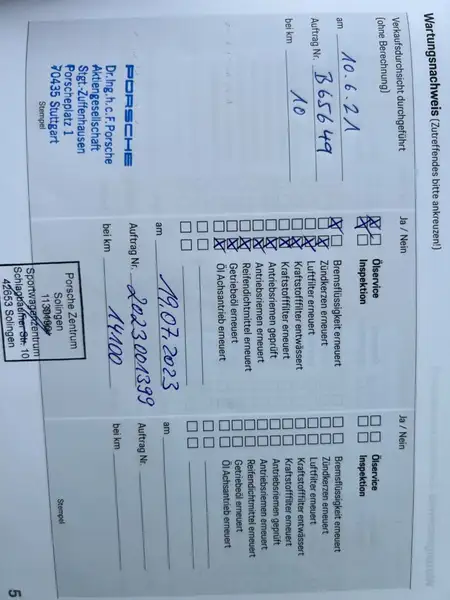 Wartungsnachweis (Zutreffendes bitte ankreuzen!)
Verkaufsdurchsicht durchgeführt
(ohne Berechnung)
am 10.6.21
Auftrag Nr. B65649
bei km 10
PORSCHE
Dr.Ing.h.c.F.Porsche
Aktiengesellschaft
Stgt.-Zuffenhausen
Porscheplatz 1
70435 Stuttgart
Stempel
Ja / Nein
Ölservice
Inspektion
Bremsflüssigkeit erneuert
Zündkerzen erneuert
Luftfilter erneuert
Kraftstofffilter entwässert
Kraftstofffilter erneuert
Antriebsriemen geprüft
Antriebsriemen erneuert
Reifendichtmittel erneuert
Getriebeöl erneuert
Öl Achsantrieb erneuert
am 19.07.2023
Auftrag Nr. 2023001399
bei km 14100
Porsche Zentrum
Solingen
Sportwagenzentrum
Schlagbaumer Str. 10
42653 Solingen
Ja / Nein
Ölservice
Inspektion
Bremsflüssigkeit erneuert
Zündkerzen erneuert
Luftfilter erneuert
Kraftstofffilter entwässert
Kraftstofffilter erneuert
Antriebsriemen geprüft
Antriebsriemen erneuert
Reifendichtmittel erneuert
Getriebeöl erneuert
Öl Achsantrieb erneuert
am
Auftrag Nr.
bei km
Stempel
5